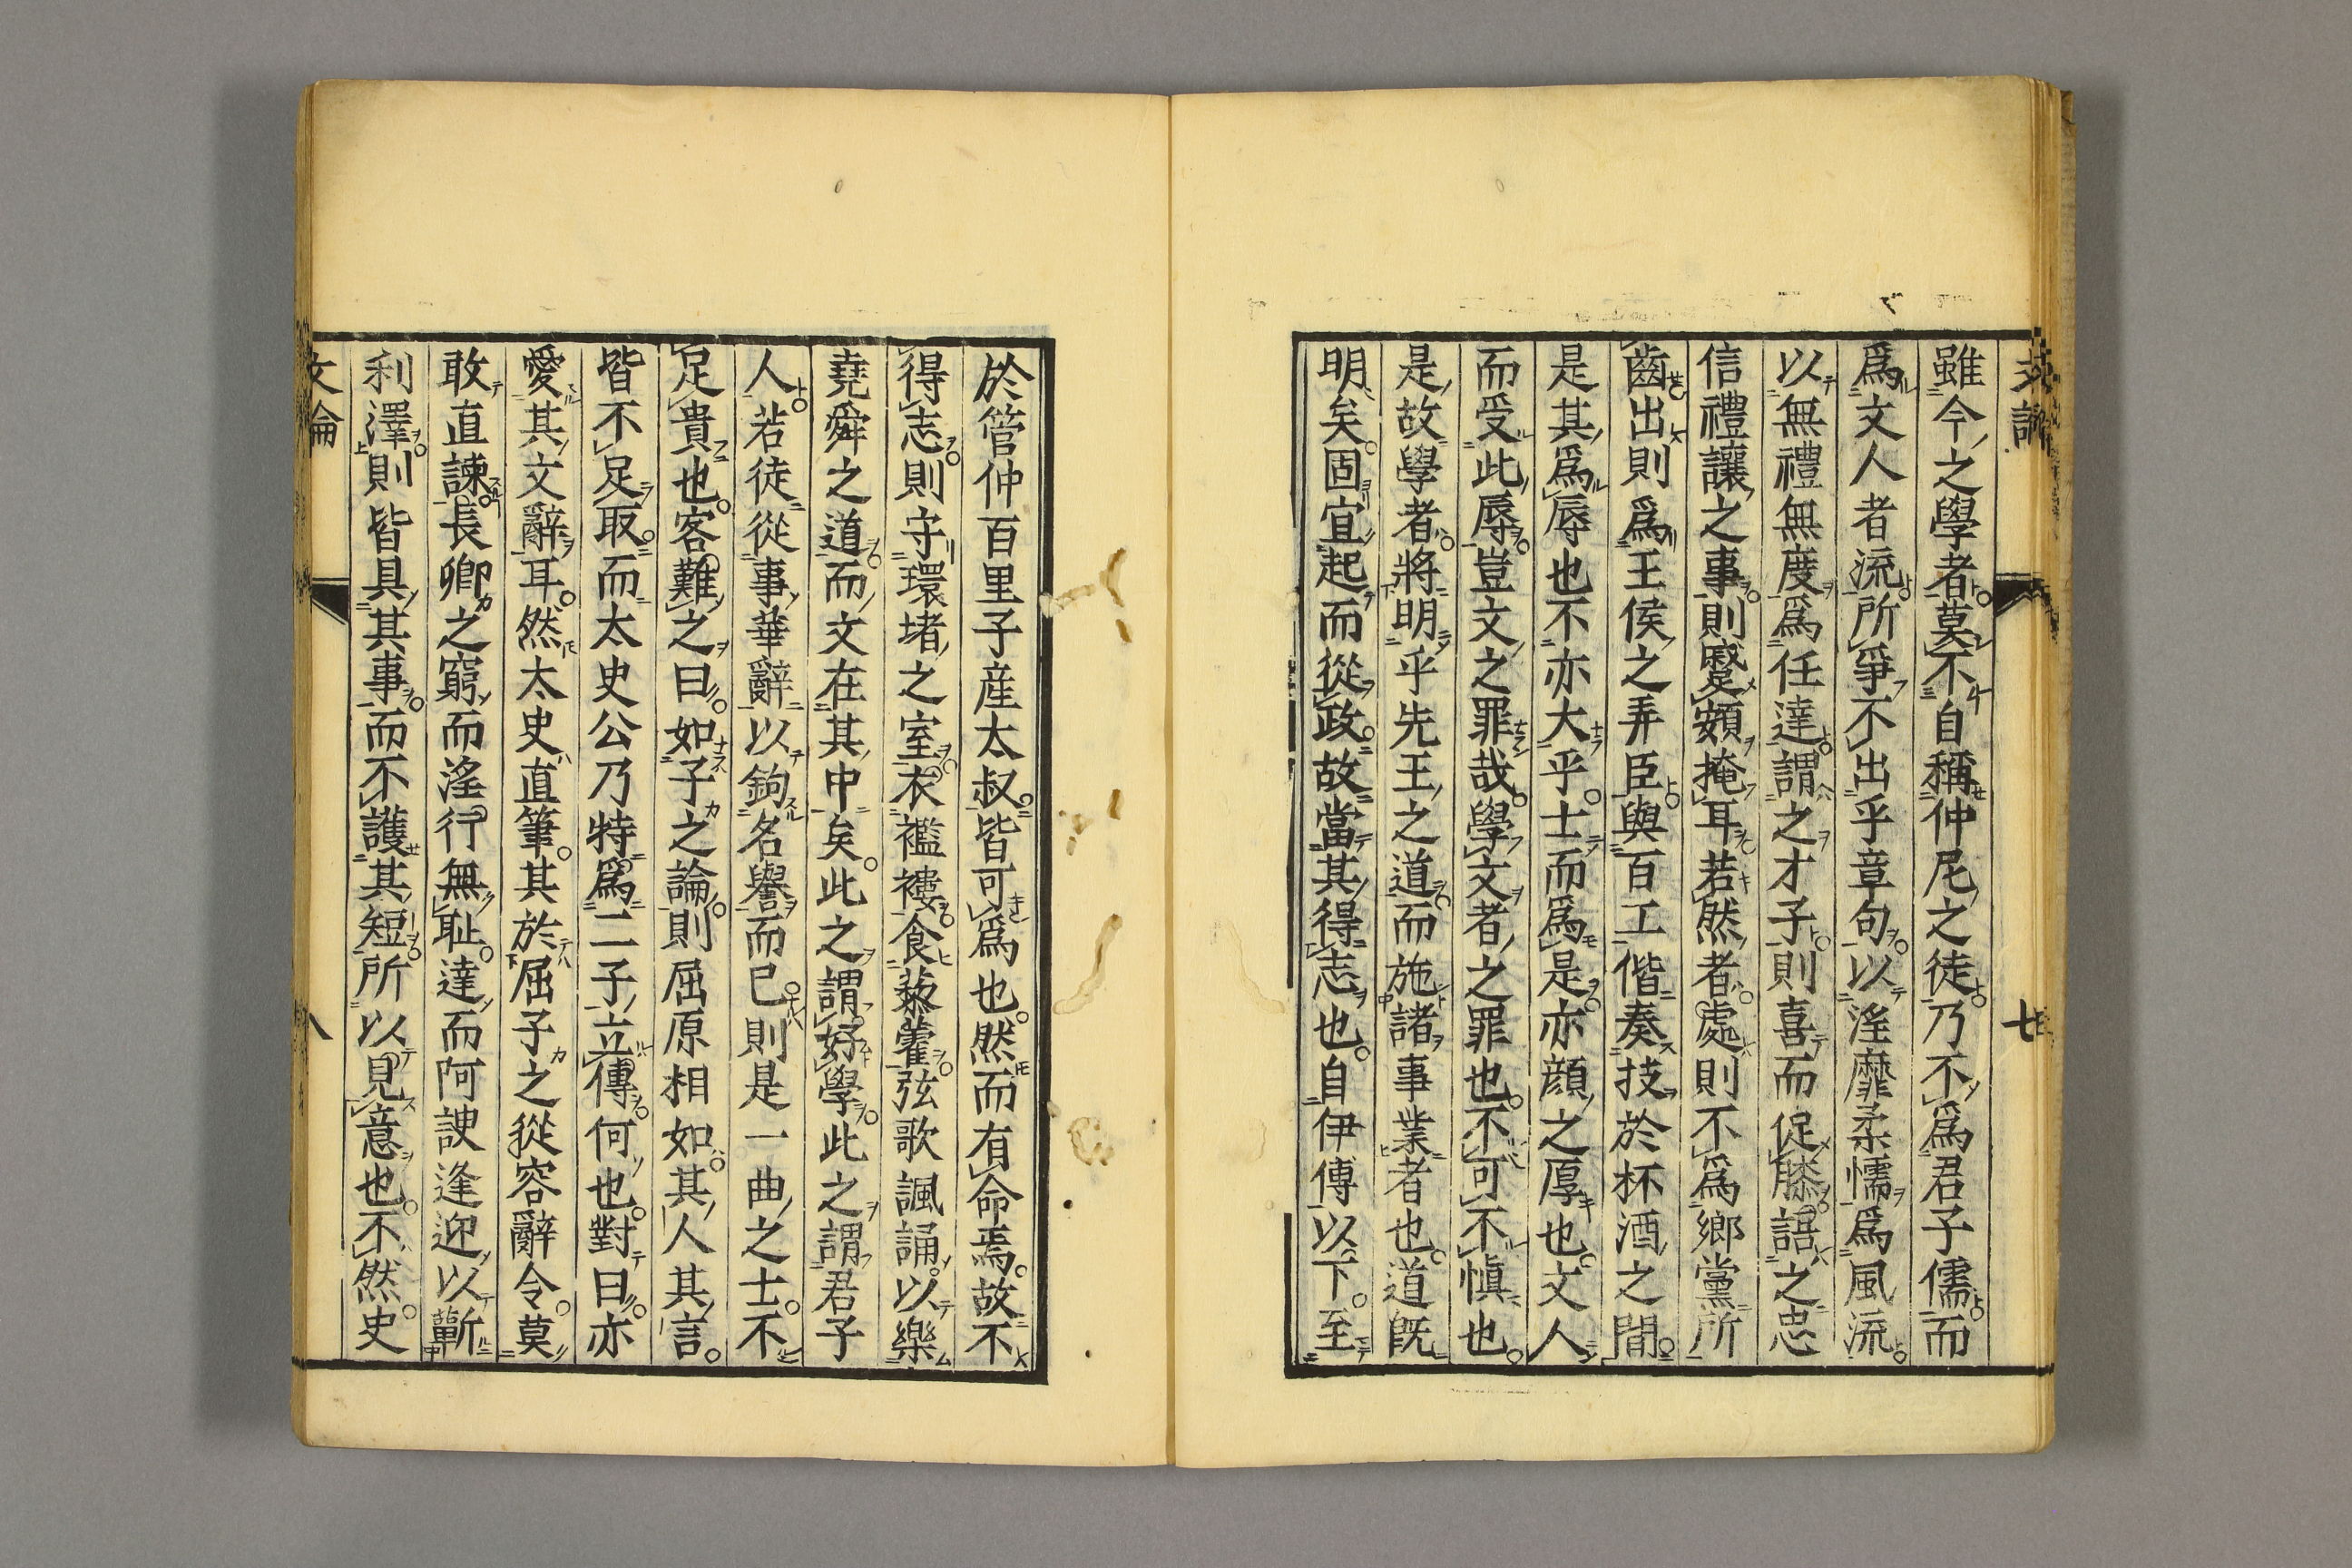 雖今之學者莫不自稱仲尼之徒乃不爲君子儒而
爲文人者流所爭不出乎章句以淫靡柔懦爲風流
以無禮無度爲任達謂之才子則喜而促膝語之忠
信禮讓之事則蹙頞掩耳若然者處則不爲鄉黨所
齒出則爲王侯之弄臣與百工偕奏技於杯酒之間
是其爲辱也不亦大乎士而爲是亦顔之厚也文人
而受此辱豈文之罪哉學文者之罪也不可不愼也
是故學者將明乎先王之道而施諸事業者也道旣
明矣固宜起而從政故當其得志也自伊傅以下至
於管仲百里子産太叔皆可爲也然而有命焉故不
得志則守環堵之室衣襤褸食藜藿弦歌諷誦以樂
堯舜之道而文在其中矣此之謂好學此之謂君子
人若徒從事華辭以鉤名譽而已則是一曲之士不
足貴也客難之曰如子之論則屈原相如其人其言
皆不足取而太史公乃特爲二子立傳何也對曰亦
愛其文辭耳然太史直筆其於屈子之從容辭令莫
敢直諫長卿之窮而淫行無耻達而阿諛逢迎以蘄
利澤則皆具其事而不護其短所以見意也不然史
文論
八